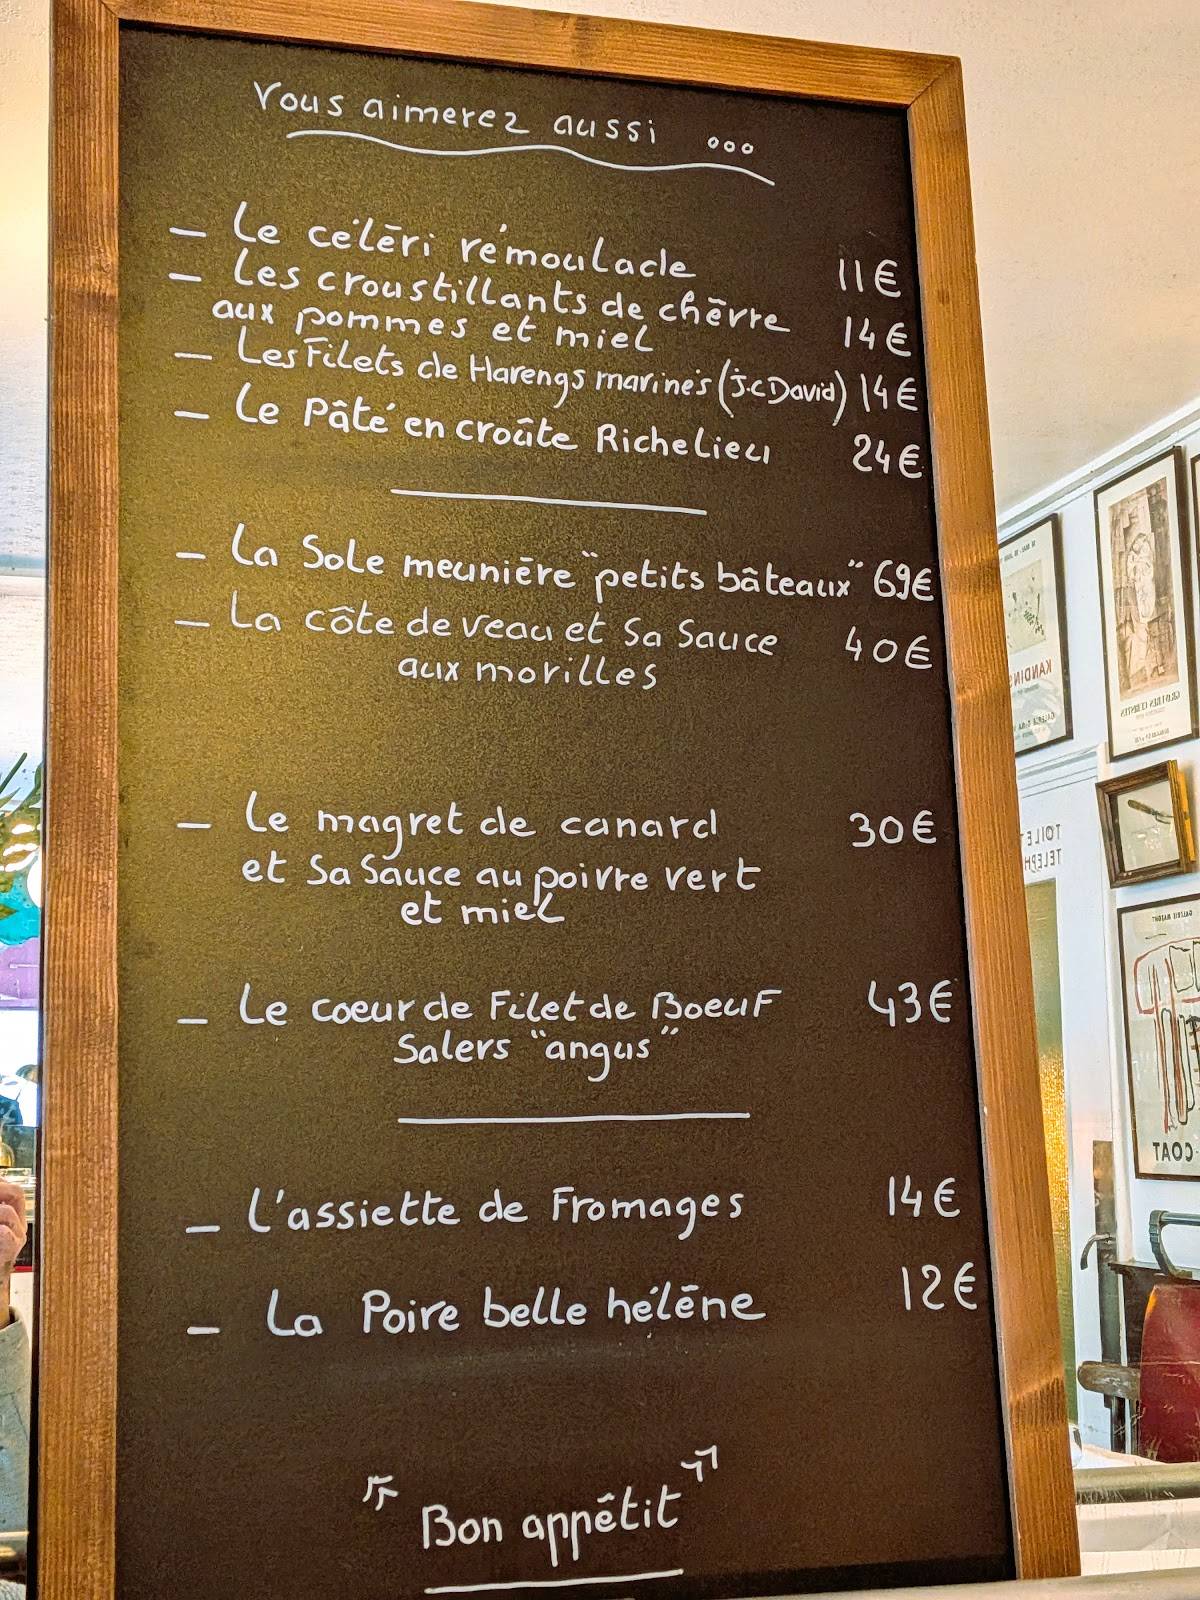 Vous aimerez aussi ...
- Le céléri rémoulade 11€
- Les croustillants de chèvre 14€
aux pommes et miel
- Les Filets de Harengs marinés (J.C David) 14€
- Le Pâté en croûte Richelieu 24€
- La Sole meunière "petits bâteaux" 69€
- La côte de veau et Sa Sauce 40€
aux morilles
- Le magret de canard 30€
et Sa Sauce au poivre vert
et miel
- Le coeur de Filet de Boeuf 43€
Salers "angus"
- L'assiette de Fromages 14€
- La Poire belle hélène 12€
Bon appêtit
KANDINS
TOILE
TELEPH
GALERIE MAEGHT
COAT